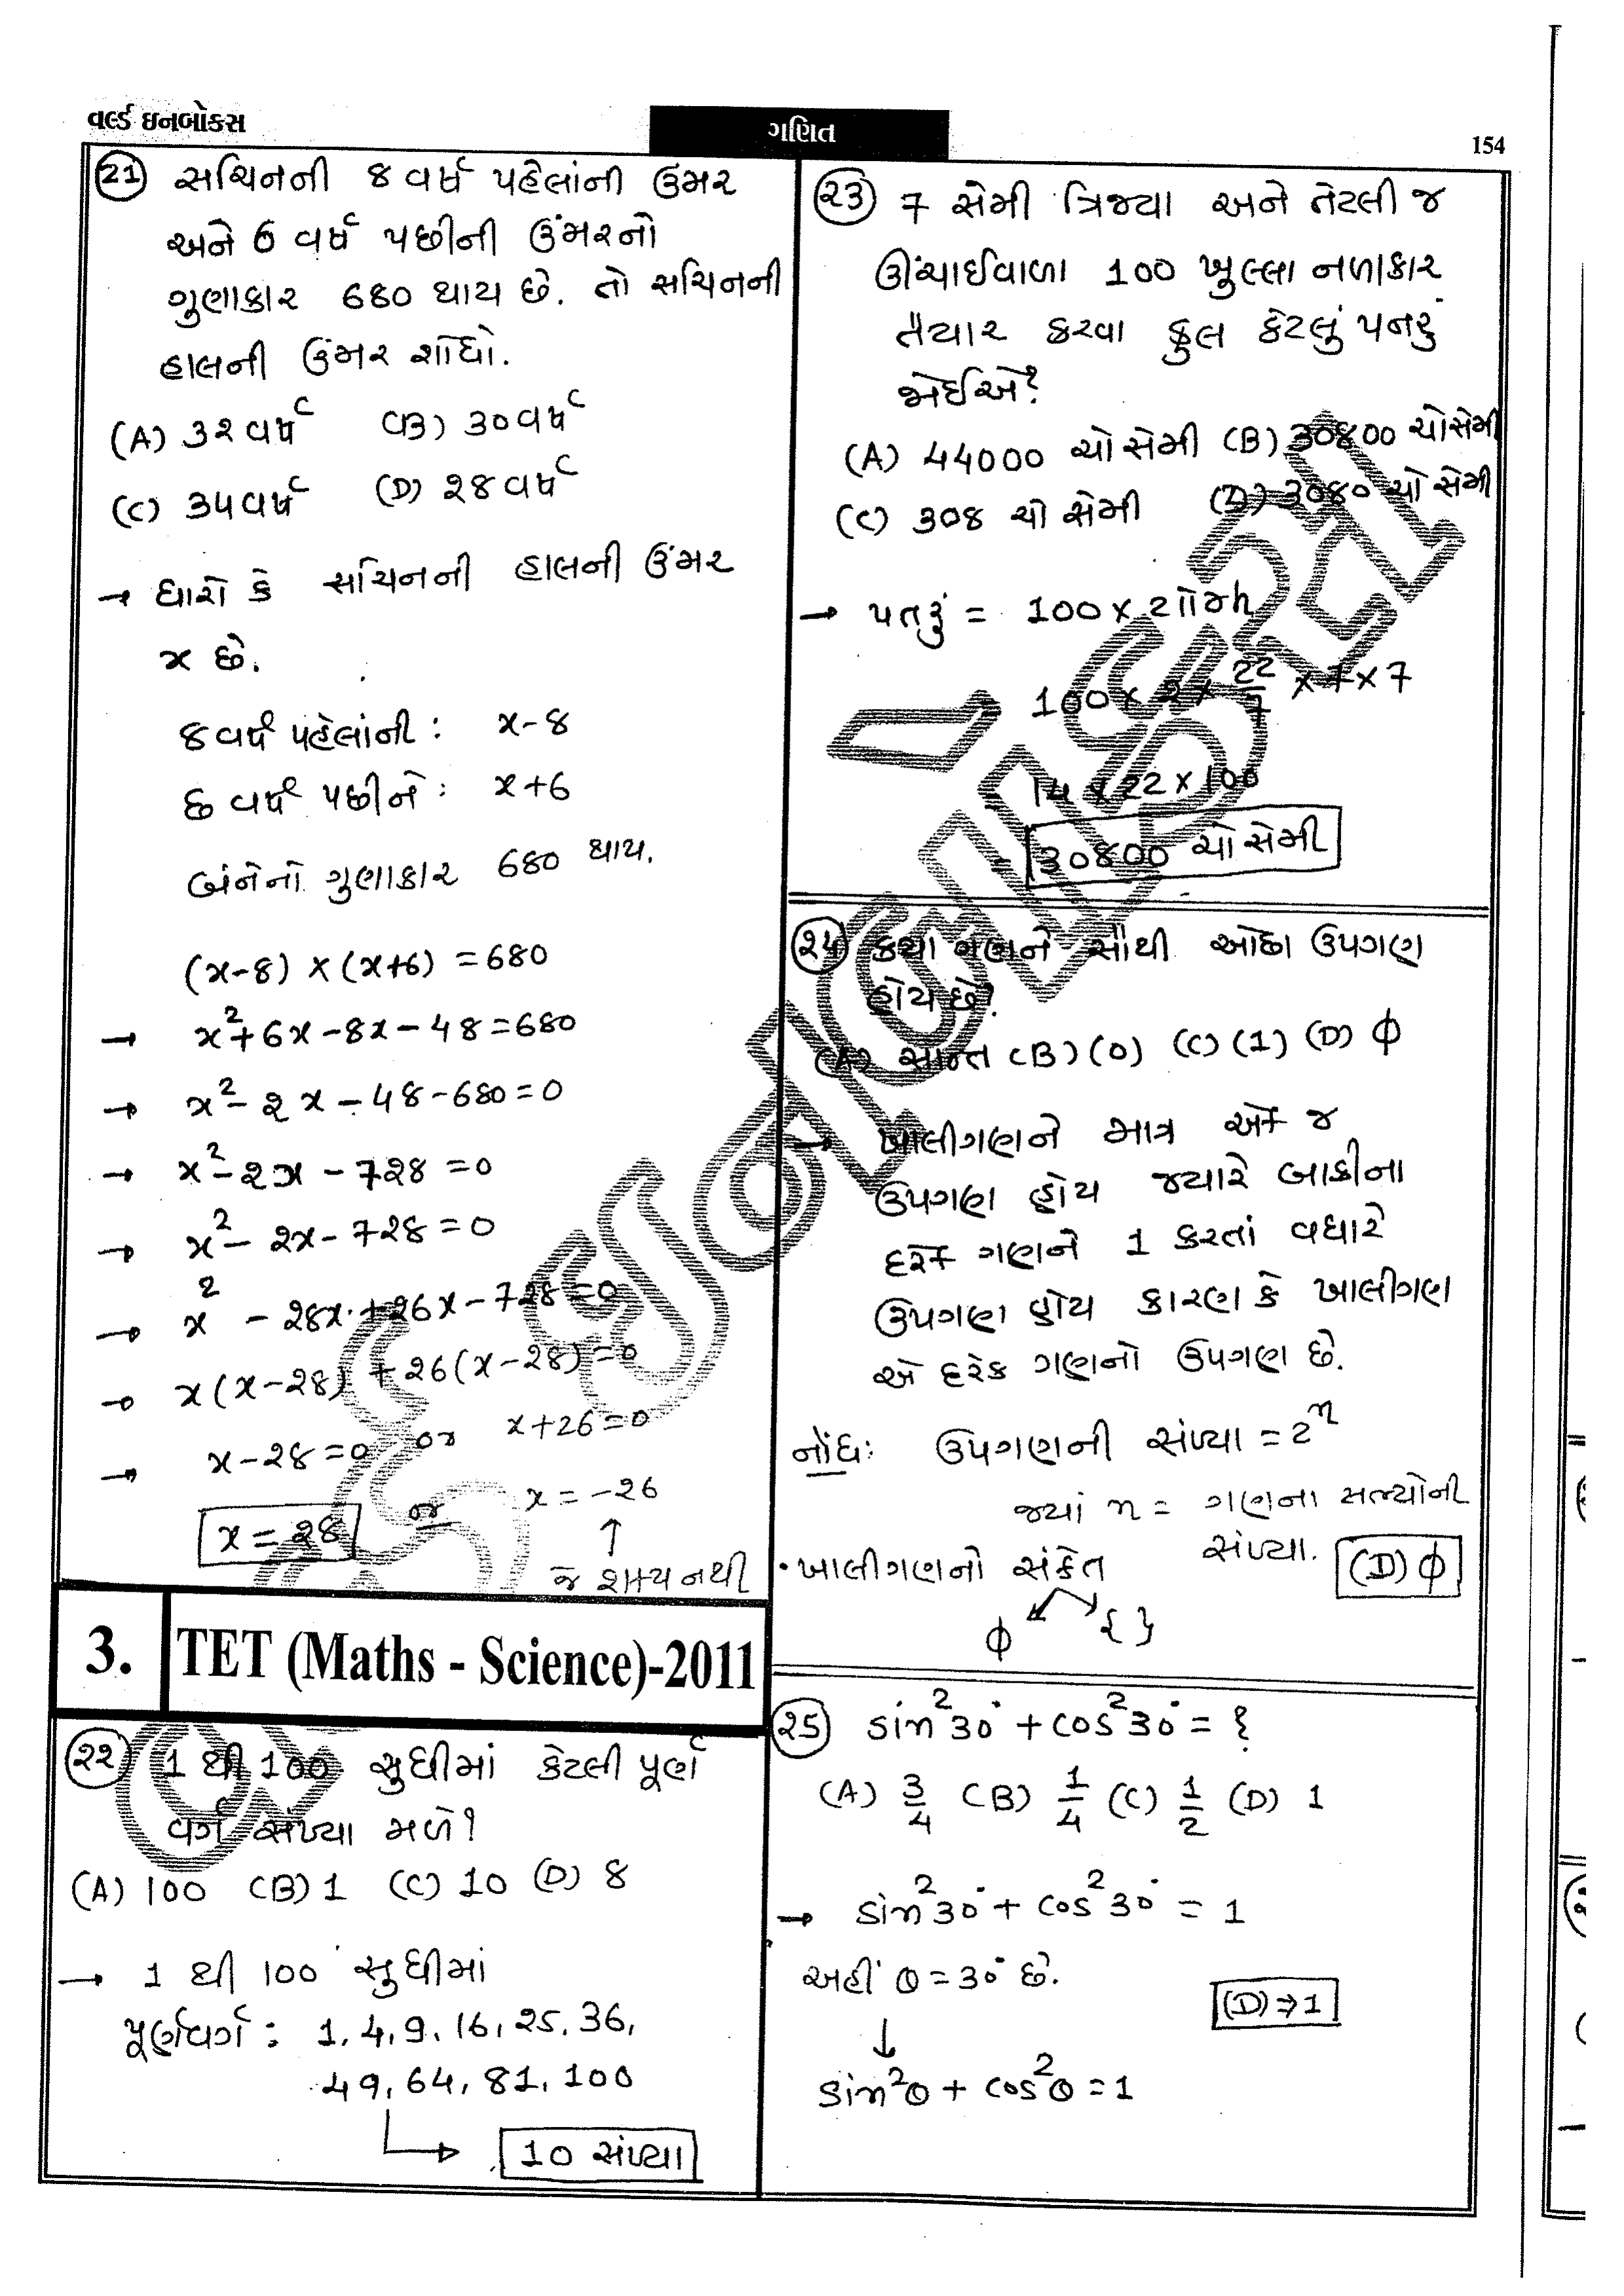 વર્લ્ડ ઇનબોક્સ
ગણિત
154
(21) સચિનની 8 વર્ષ પહેલાંની ઉંમર
અને 6 વર્ષ પછીની ઉંમરનો
ગુણાકાર 680 થાય છે. તો સચિનની
હાલની ઉંમર શોધો.
(A) 32 વર્ષ (B) 30 વર્ષ
(C) 34 વર્ષ (D) 28 વર્ષ
→ ધારો કે સચિનની હાલની ઉંમર
x છે.
8 વર્ષ પહેલાંની : x-8
છ વર્ષ પછીને : x+6
બંનેનો ગુણાકાર 680 થાય.
(x-8) × (x+6) = 680
→ x²+6x-8x-48=680
→ x²-2x-48-680=0
→ x²-2x-728=0
→ x²-2x-728=0
→ x²-28x+26x-728=0
→ x(x-28)+26(x-28)=0
→ x-28=0 or x+26=0
x=28 or x=-26
↑
જે શક્ય નથી
3. TET (Maths - Science)-2011
(22) 1 થી 100 સુધીમાં કેટલી પૂર્ણ
વર્ગ સંખ્યા મળે?
(A) 100 (B) 1 (C) 10 (D) 8
→ 1 થી 100 સુધીમાં
પૂર્ણવર્ગ : 1, 4, 9, 16, 25, 36,
49, 64, 81, 100
10 સંખ્યા
(23) 7 સેમી ત્રિજ્યા અને તેટલી જ
ઊંચાઈવાળા 100 ખુલ્લા નળાકાર
તૈયાર કરવા કુલ કેટલું પતરું
જોઈએ?
(A) 44000 ચો સેમી (B) 30800 ચોસેમી
(C) 308 ચો સેમી (D) 3080 ચો સેમી
→ પતરું = 100 × 2πrh
= 100 × 2 × 22/7 × 7 × 7
= 14 × 22 × 100
= 30800 ચો સેમી
(24) કયા ગણને સૌથી ઓછા ઉપગણ
હોય છે?
(A) સાન્ત (B) (0) (C) (1) (D) ϕ
→ ખાલીગણને માત્ર એક જ
ઉપગણ હોય જ્યારે બાકીના
દરેક ગણને 1 કરતાં વધારે
ઉપગણ હોય કારણ કે ખાલીગણ
એ દરેક ગણનો ઉપગણ છે.
નોંધઃ ઉપગણની સંખ્યા = 2ⁿ
જ્યાં n = ગણના સભ્યોની
સંખ્યા.
(D) ϕ
• ખાલીગણનો સંકેત
ϕ { }
(25) sin²30° + cos²30° = ?
(A) 3/4 (B) 1/4 (C) 1/2 (D) 1
→ sin²30° + cos²30° = 1
અહીં θ = 30° છે.
(D) ⇒ 1
↓
sin²θ + cos²θ = 1